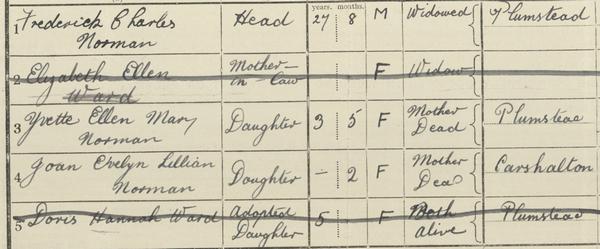 years. months.
1 Frederick Charles Norman Head 27 8 M Widowed Plumstead
2 Elizabeth Ellen Ward Mother-in-Law F Widow
3 Yvette Ellen Mary Norman Daughter 3 5 F Mother Dead Plumstead
4 Joan Evelyn Lillian Norman Daughter - 2 F Mother Dead Carshalton
5 Doris Hannah Ward Adopted Daughter 5 F Both alive Plumstead